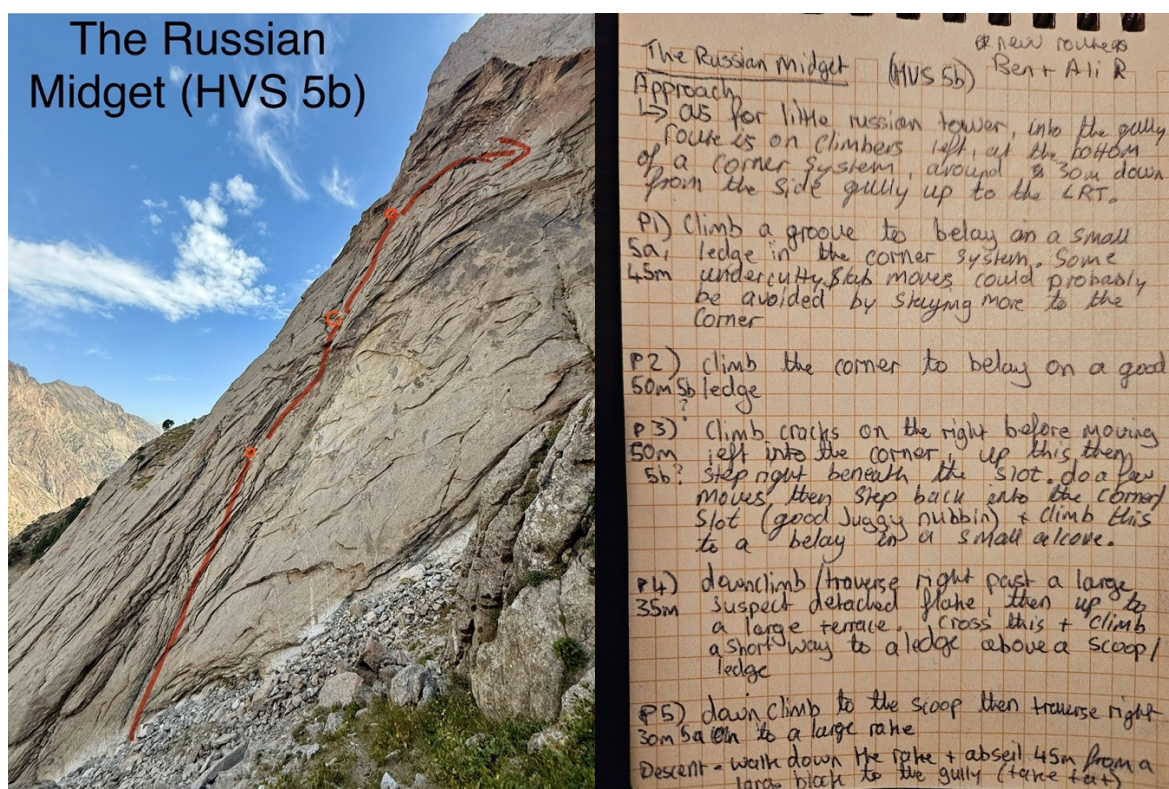 The Russian
Midget (HVS 5b)
new routers
The Russian Midget (HVS 5b) Ben + Ali R
Approach
↳ as for little russian tower, into the gully
route is on climbers left, at the bottom
of a corner system, around 30m down
from the side gully up to the LRT.
P1) climb a groove to belay on a small
5a, ledge in the corner system. Some
45m undercutty slab moves could probably
be avoided by staying more to the
corner
P2) climb the corner to belay on a good
50m 5b ledge
?
P3) climb cracks on the right before moving
50m left into the corner, up this then
5b? step right beneath the slot. do a few
moves then step back into the corner/
slot (good juggy nubbin) + climb this
to a belay in a small alcove.
P4) downclimb/traverse right past a large
35m suspect detached flake, then up to
a large terrace. Cross this + climb
a short way to a ledge above a scoop/
ledge
P5) down climb to the scoop then traverse right
30m 5a on to a large rake
Descent - walk down the rake + abseil 45m from a
large block to the gully (take tat)